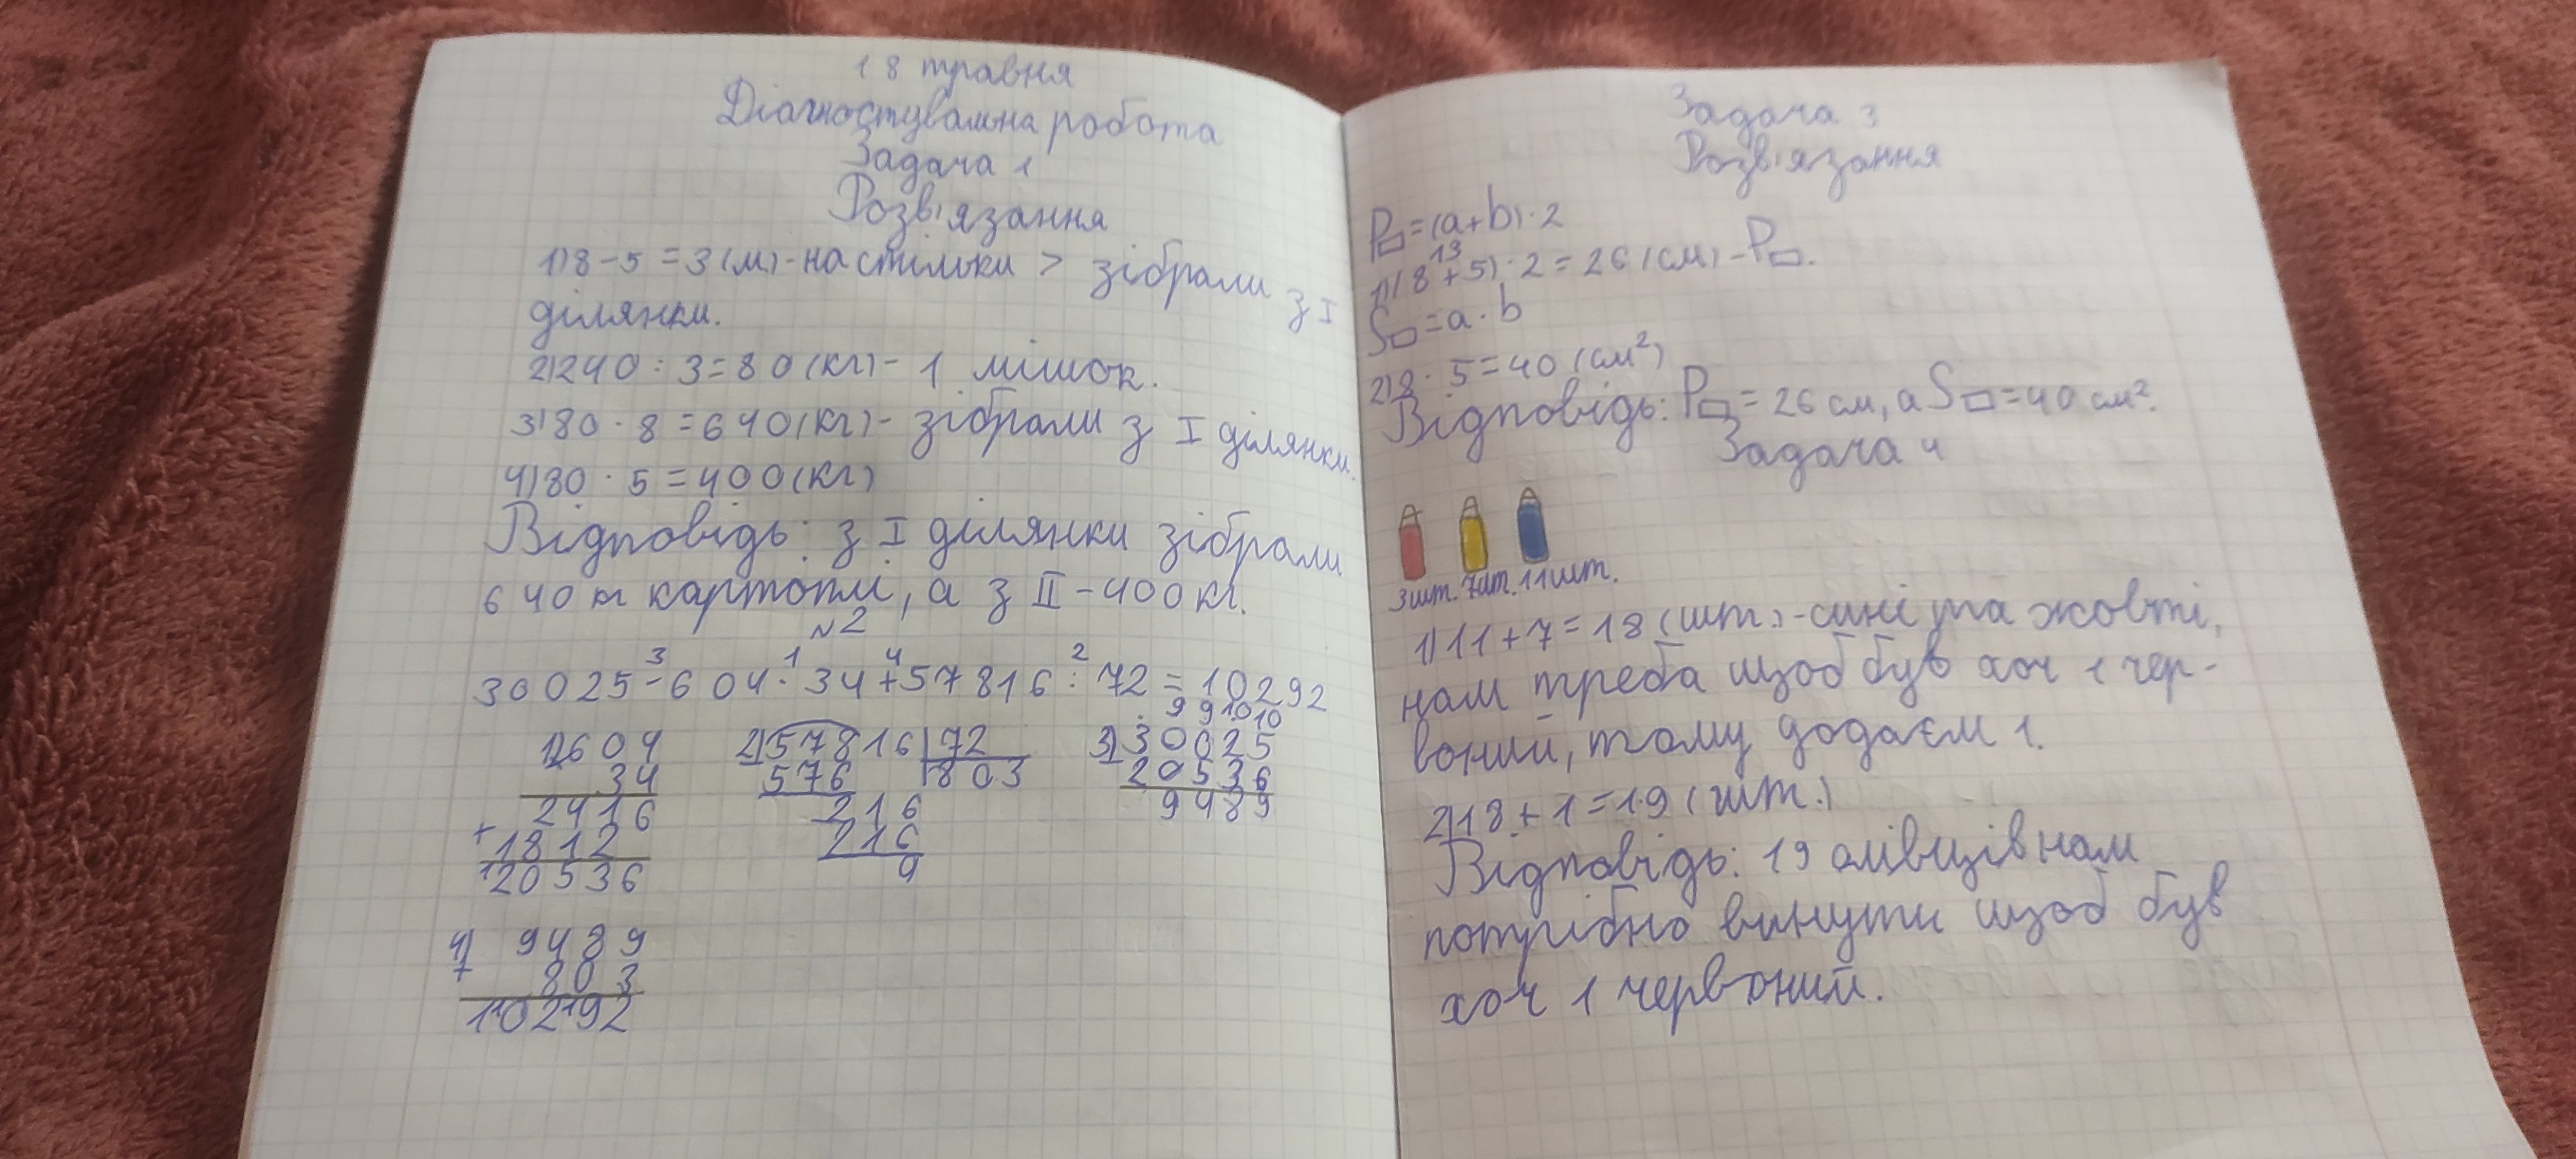 18 травня
Діагностувальна робота
Задача 1
Розв'язання
1) 8 - 5 = 3 (м) - на стільки > зібрали з I
ділянки.
2) 240 : 3 = 80 (кг) - 1 мішок.
3) 80 · 8 = 640 (кг) - зібрали з I ділянки.
4) 80 · 5 = 400 (кг)
Відповідь: з I ділянки зібрали
640 кг картоплі, а з II - 400 кг.
№2
3 1 4 2
30025 - 604 · 34 + 57816 : 72 = 10292
1) 604
34
2416
+ 1812
20536
2) 57816 | 72
576 | 803
216
216
0
9 9 10 10
3) 30025
20536
9489
4) 9489
+ 803
10292
Задача 3
Розв'язання
P▭ = (a + b) · 2
13
1) (8 + 5) · 2 = 26 (см) - P▭.
S▭ = a · b
2) 8 · 5 = 40 (см²)
Відповідь: P▭ = 26 см, а S▭ = 40 см².
Задача 4
3 шт. 7 шт. 11 шт.
1) 11 + 7 = 18 (шт.) - сині та жовті,
нам треба щоб був хоч 1 чер-
воний, тому додаєм 1.
2) 18 + 1 = 19 (шт.)
Відповідь: 19 олівців нам
потрібно винути щоб був
хоч 1 червоний.